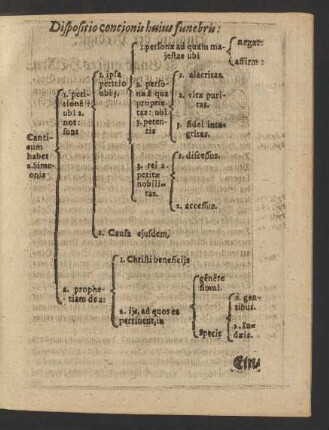 Dispositio concionis huius funebris:
Canti-
cum
habet
2. Sime-
onis
1. peti-
tionē
ubi 2.
not:
sunt
1. ipsa
petitio
ubi 3.
1. persona ad quam ma-
jestas ubi
negat:
affirm:
2. perso-
na à qua
proprie-
tas: ubi
3. peten-
tis
1. alacritas.
2. vitæ puri-
tas.
3. fidei inte-
gritas.
3. rei
petitæ
nobili-
tas.
1. discessus.
2. accessus.
2. Causa ejusdem,
2. prophe-
tiam de 2:
1. Christi beneficijs
2. ijs, ad quos ea
pertinent, in
genere
simul.
specie
1. gen-
tibus.
2. Iu-
dæis.